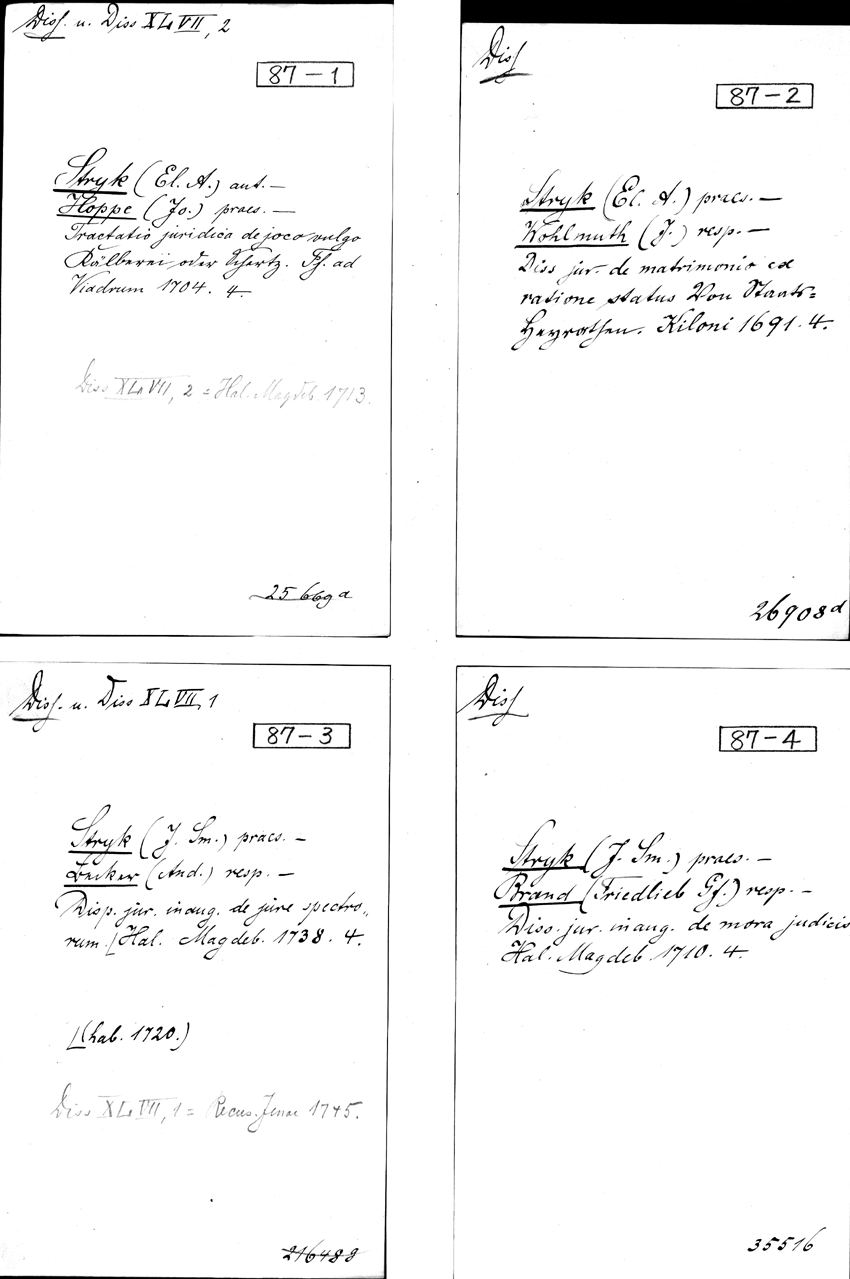 Diss. u. Diss XLVII, 2
87-1
Stryk (El. A.) aut. —
Hoppe (Jo.) praes. —
Tractatio juridica de joco vulgo
Kälberei oder Schertz. Ff. ad
Viadrum 1704. 4.
Diss XLVII, 2 = Hal. Magdeb. 1713.
25669a
Diss
87-2
Stryk (El. A.) praes. —
Wohlmuth (J.) resp. —
Diss jur. de matrimonio ex
ratione status Von Staats=
Heyrathen. Kiloni 1691. 4.
26908d
Diss. u. Diss XLVII, 1
87-3
Stryk (J. Sm.) praes. —
Becker (And.) resp. —
Disp. jur. inaug. de jure spectro„
rum. [Hal. Magdeb. 1738. 4.
[(hab. 1720.)
Diss XLVII, 1 = Recus. Jenae 1745.
Diss
87-4
Stryk (J. Sm.) praes. —
Brand (Friedlieb Gf.) resp. —
Diss. jur. inaug. de mora judicis
Hal. Magdeb. 1710. 4.
35516